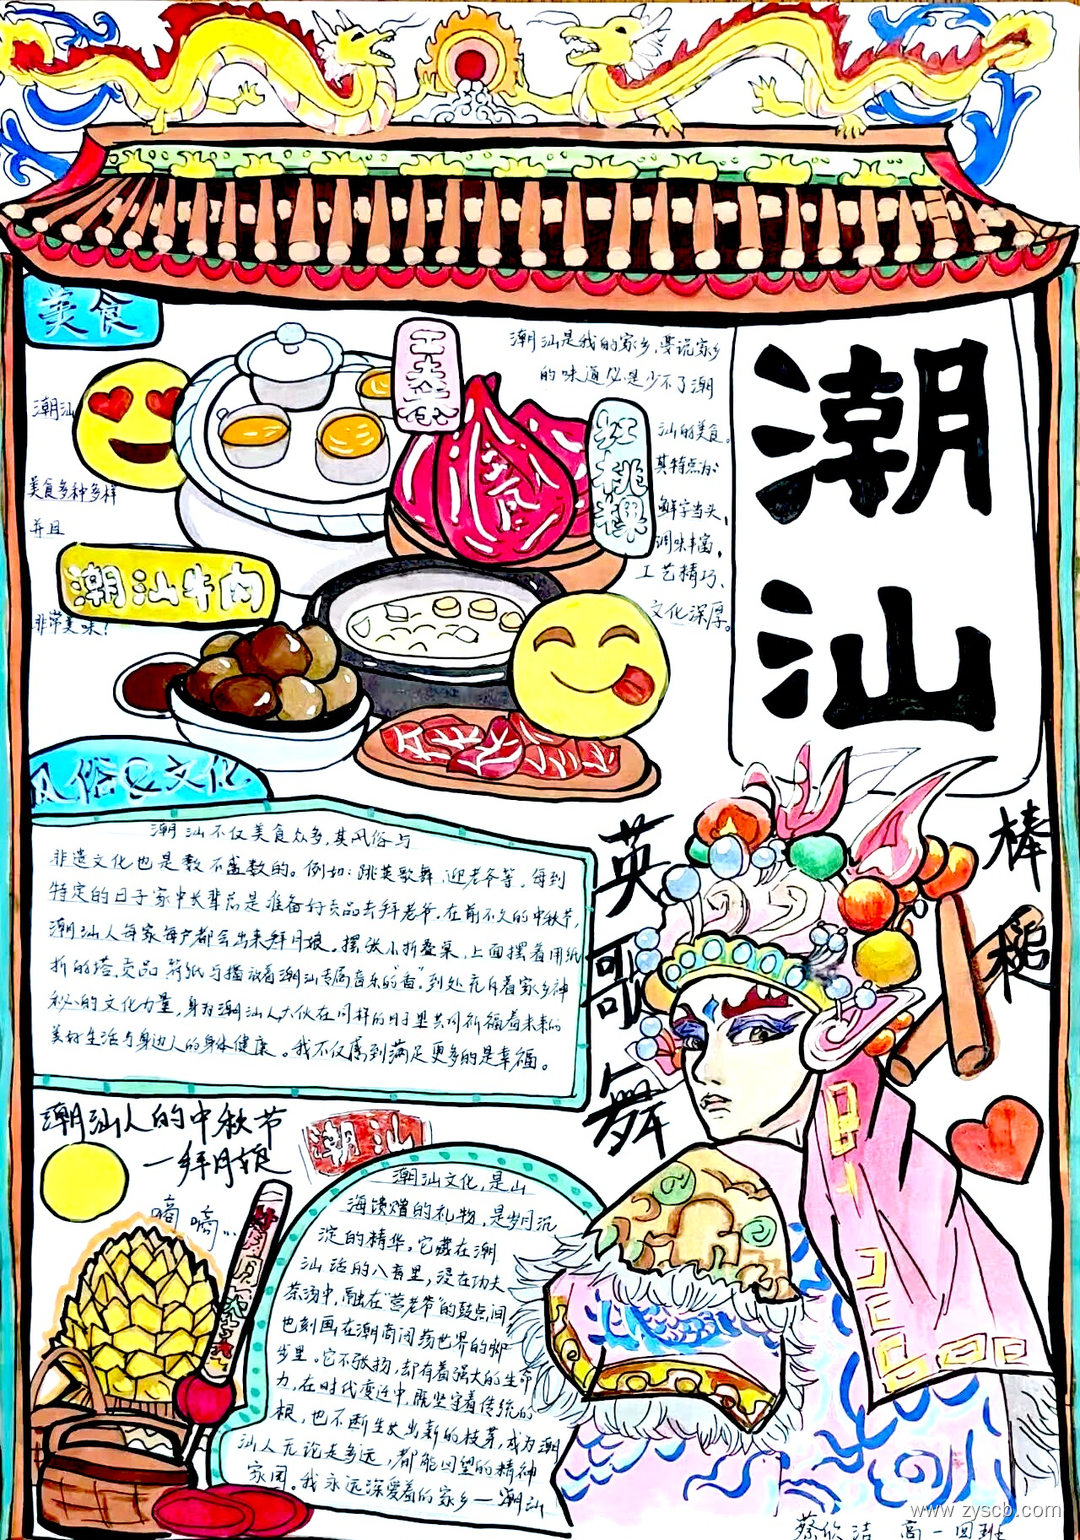 美食
潮汕
美食多种多样
并且
非常美味!
工夫茶
红桃粿
潮汕牛肉
潮汕是我的家乡,要说家乡
的味道必是少不了潮
汕的美食。
其特点为:
鲜字当头,
调味丰富,
工艺精巧、
文化深厚。
潮汕
风俗&文化
潮汕不仅美食众多,其风俗与
非遗文化也是数不盛数的。例如:跳英歌舞、迎老爷等。每到
特定的日子家中长辈总是准备好贡品去拜老爷。在前不久的中秋节,
潮汕人每家每户都会出来拜月娘。摆张小折叠桌,上面摆着用纸
折的塔、贡品、符纸与播放着潮汕专属音乐的"香",到处充斥着家乡神
秘的文化力量,身为潮汕人大伙在同样的日子里共同祈福着未来的
美好生活与身边人的身体健康。我不仅感到满足更多的是幸福。
英歌舞
棒槌
潮汕人的中秋节
—拜月娘
嘀嘀...
潮汕
潮汕文化,是山
海馈赠的礼物,是岁月沉
淀的精华。它藏在潮
汕话的八音里,浸在功夫
茶汤中,融在"营老爷"的鼓点间,
也刻画在潮商闯荡世界的脚
步里。它不张扬,却有着强大的生命
力,在时代变迁中,既坚守着传统的
根,也不断生发出新的枝芽,成为潮
汕人无论走多远,都能回望的精神
家园。我永远深爱着的家乡—潮汕
蔡欣洁 高一四班
www.zyscb.com